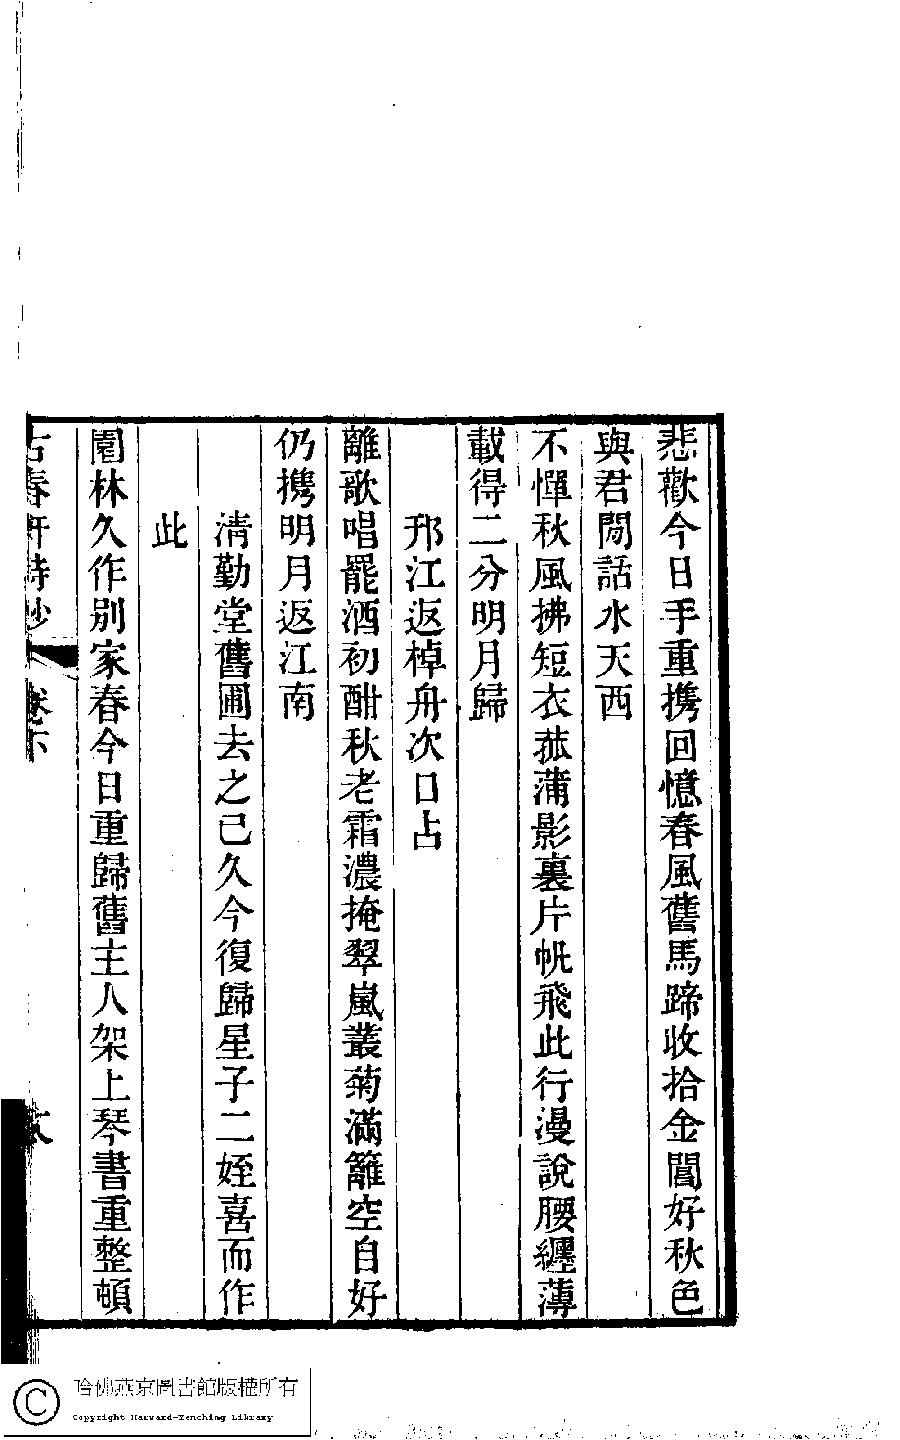 悲歡今日手重携回憶春風舊馬蹄收拾金閶好秋色
與君閒話水天西
不憚秋風拂短衣菰蒲影裏片帆飛此行漫說腰纏薄
載得二分明月歸
邗江返棹舟次口占
離歌唱罷酒初酣秋老霜濃掩翠嵐叢菊滿籬空自好
仍携明月返江南
清勤堂舊圃去之已久今復歸星子二姪喜而作
此
園林久作別家春今日重歸舊主人架上琴書重整頓
古春軒詩鈔 卷下
哈佛燕京圖書館版權所有
Copyright Harvard-Yenching Library